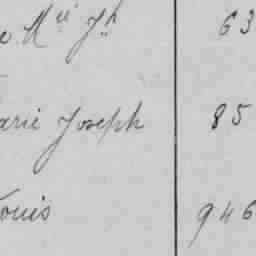 e Mie Jh 63
arie Joseph 85
ouis 946